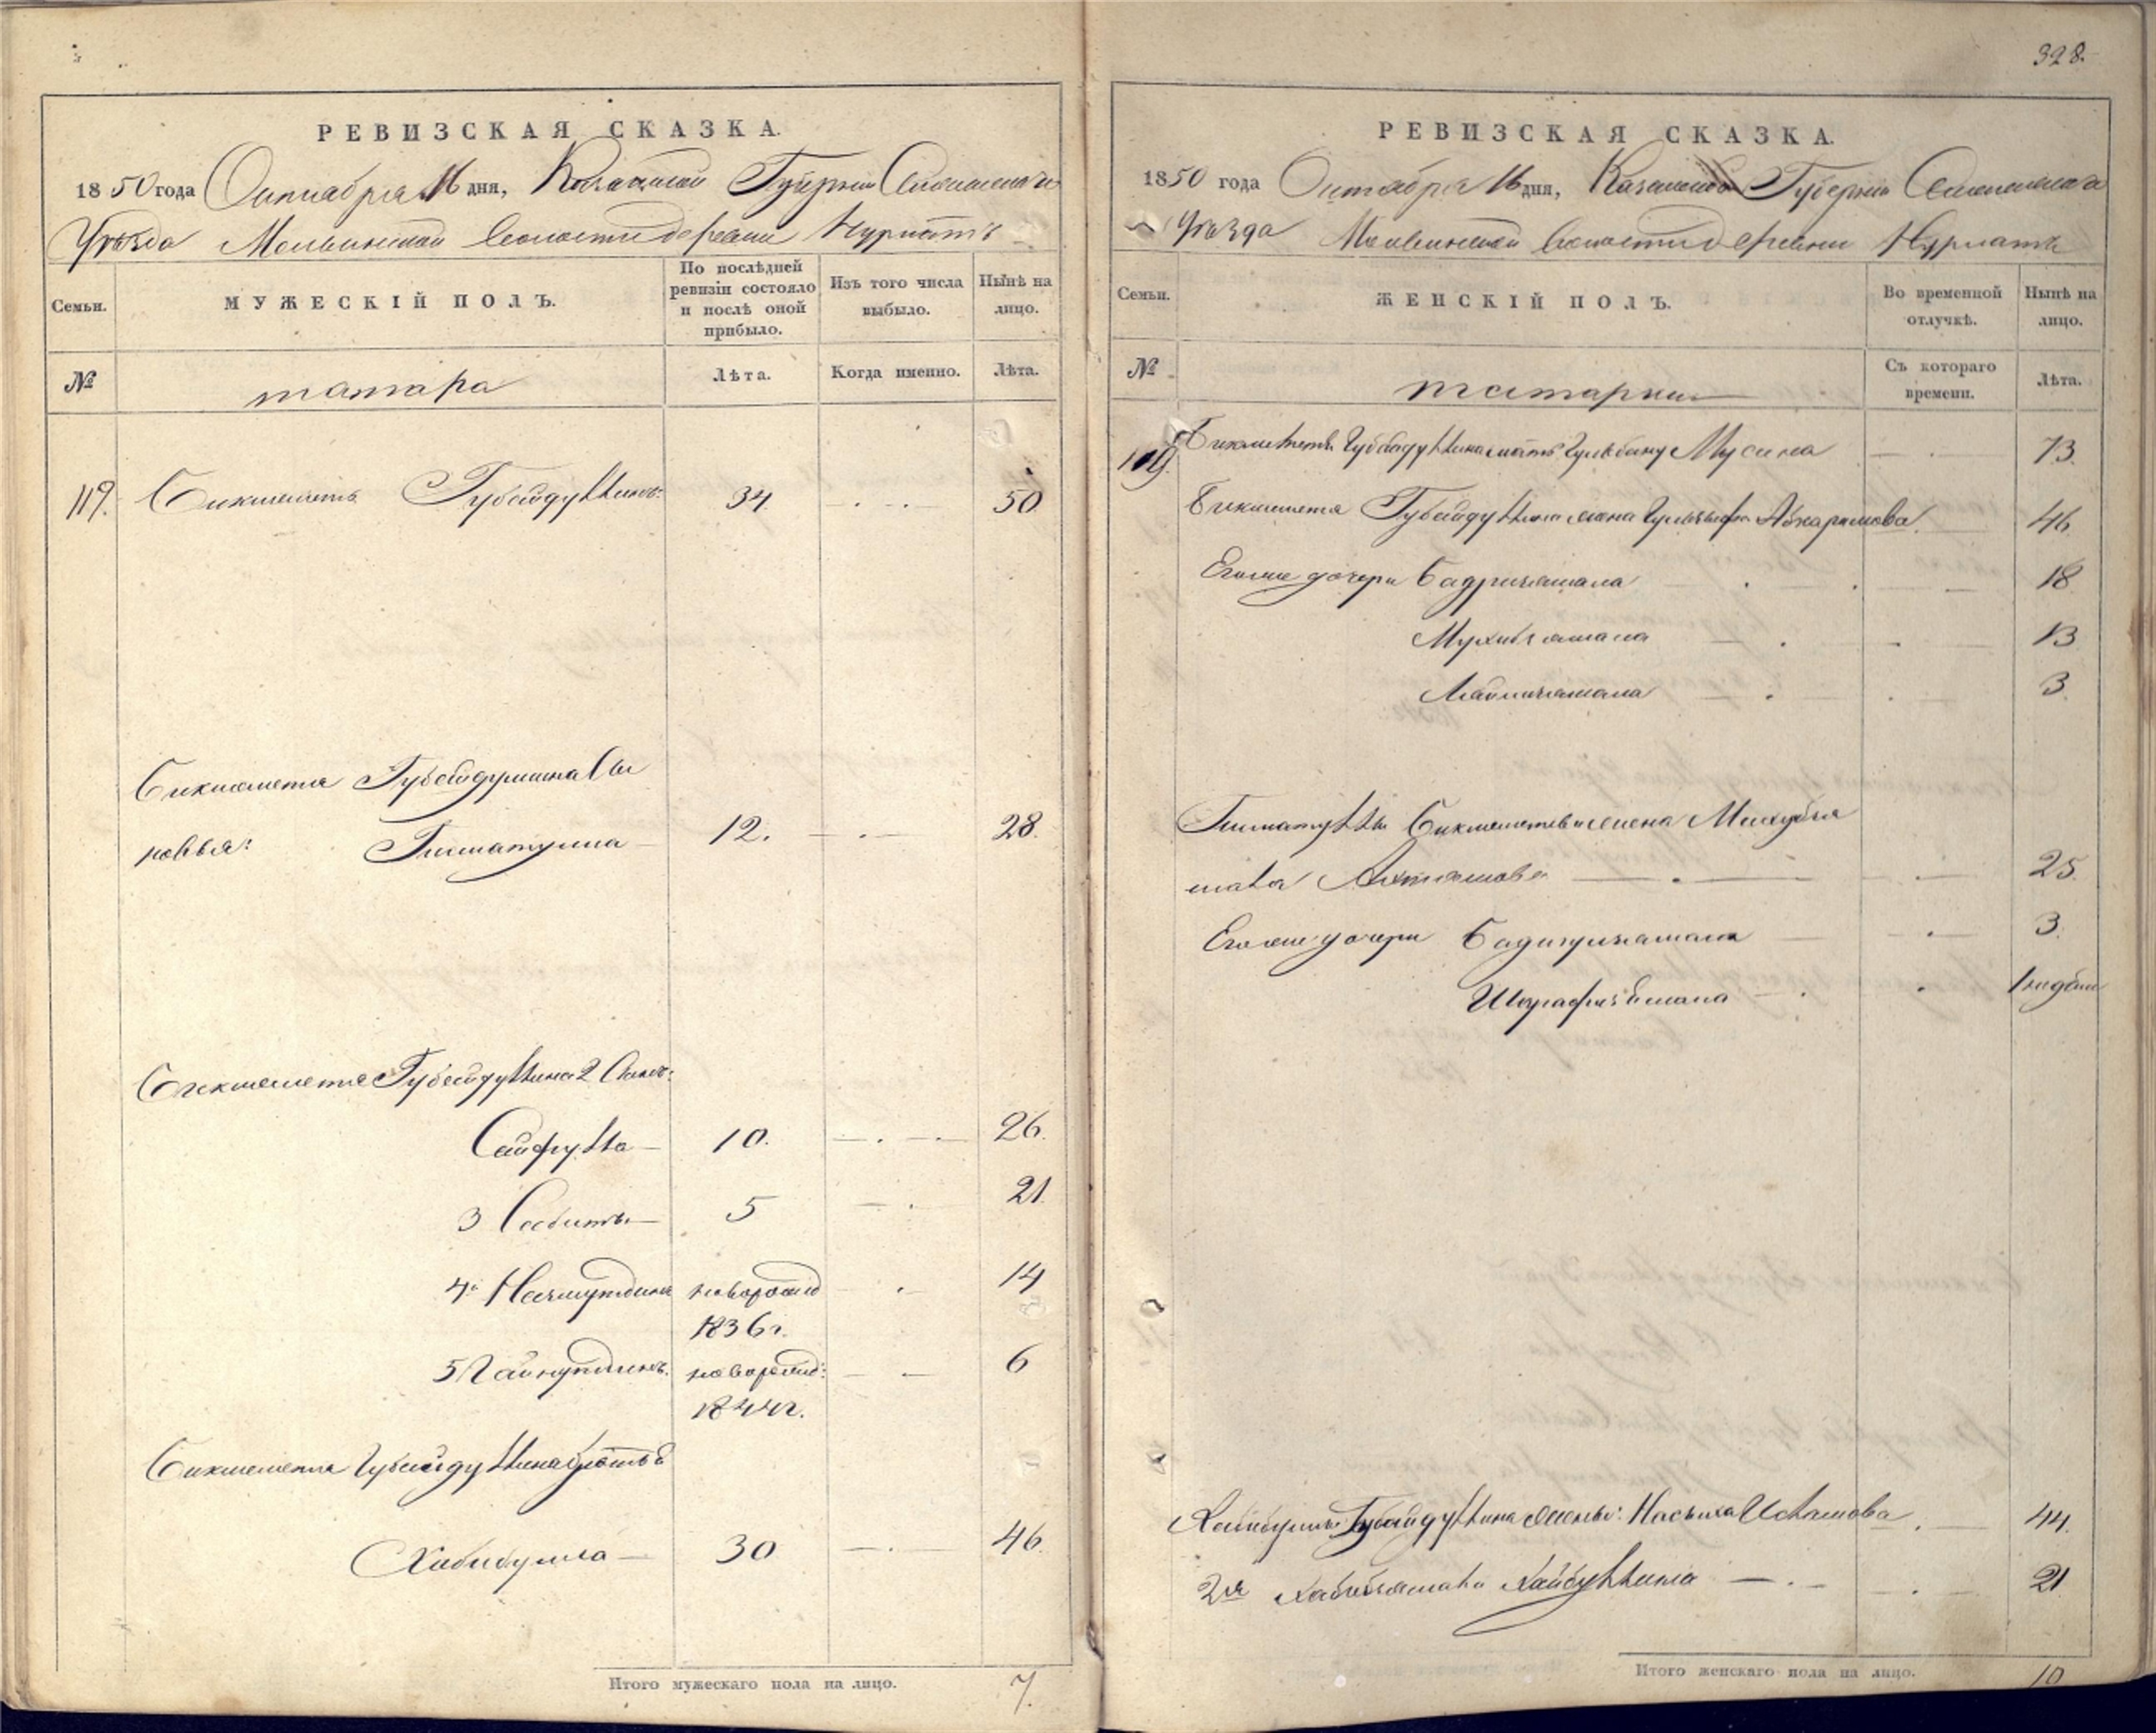 РЕВИЗСКАЯ СКАЗКА.
1850 года Октября 16 дня, Казанской Губернии Свіяжскаго
Уѣзда Молвинской волости деревни Нурлатъ
Семьи.
МУЖЕСКІЙ ПОЛЪ.
По послѣдней ревизіи состояло и послѣ оной прибыло.
Изъ того числа выбыло.
Нынѣ на лицо.
№
татара
Лѣта.
Когда именно.
Лѣта.
119. Бикмеметь Губейдуллинъ: 34 50
Бикмеметя Губейдуллина сы
новья: Гиматулла 12. 28.
Бикмеметя Губейдуллина 2 сынъ:
Сайфулла 10. 26.
3 Сабитъ 5 21.
4й новорожд 14
1836 г.
5 новорожд: 6
1844 г.
Бикмеметя Губейдуллина братья
Хабибулла 30 46.
Итого мужескаго пола на лицо. 7.
328.
РЕВИЗСКАЯ СКАЗКА.
1850 года Октября 16 дня, Казанской Губерніи
Уѣзда Молвинской волости деревни Нурлатъ
Семьи.
ЖЕНСКІЙ ПОЛЪ.
Во временной отлучкѣ.
Нынѣ на лицо.
№
татарки
Съ котораго времени.
Лѣта.
119. Бикмеметя Губайдуллина мать Гульбану Мусина 73.
Бикмеметя Губейдуллина жена Абкаримова. 46.
Его же дочери Бадрижамала 18
Мухибжамала 13
3.
Гиматуллы Бикмеметева жена Махубжа
мала Ахтямова 25.
Его же дочери 3.
Шарафижамала 1 недѣли
Хабибуллы Губайдуллина жены: Насыха Исламова 44.
2я Хабибжамала Хайбуллина 21
Итого женскаго пола на лицо. 10